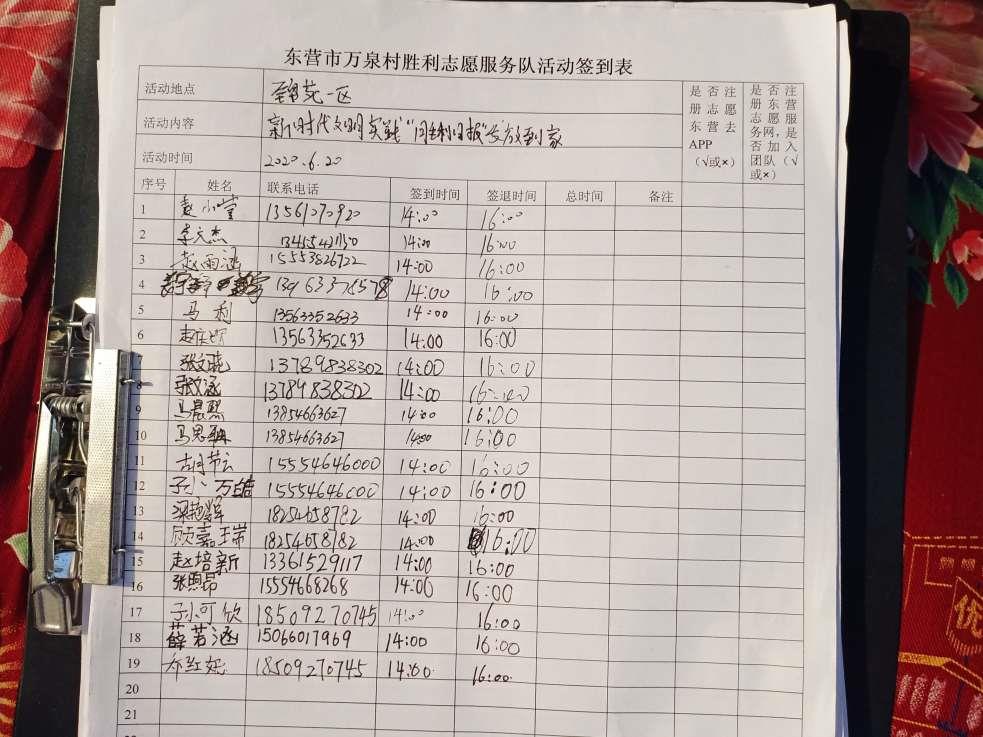 东营市万泉村胜利志愿服务队活动签到表
活动地点 锦苑一区
活动内容 新时代文明实践“日报”发放到家
活动时间 2020.6.20
是否注册志愿东营去APP（√或×）
是否注册东营志愿服务网，是否加入团队（√或×）
序号 姓名 联系电话 签到时间 签退时间 总时间 备注
1 赵小莹 13561070920 14:00 16:00
2 李文杰 14:00 16:00
3 赵雨涵 15553826722 14:00 16:00
4 14:00 16:00
5 马利 13563352633 14:00 16:00
6 13563352633 14:00 16:00
7 张文 13789838302 14:00 16:00
8 张文涵 13789838302 14:00 16:00
9 马晨熙 13854663627 14:00 16:00
10 马思 13854663627 14:00 16:00
11 胡节云 15554646000 14:00 16:00
12 孙万 15554646000 14:00 16:00
13 梁艳辉 18254658782 14:00 16:00
14 顾嘉瑞 18254658782 14:00 16:00
15 赵培新 13361529117 14:00 16:00
16 张熙昂 15554668268 14:00 16:00
17 孙可欣 18509270745 14:00 16:00
18 薛若涵 15066017969 14:00 16:00
19 乔红 18509270745 14:00 16:00
20
21
优